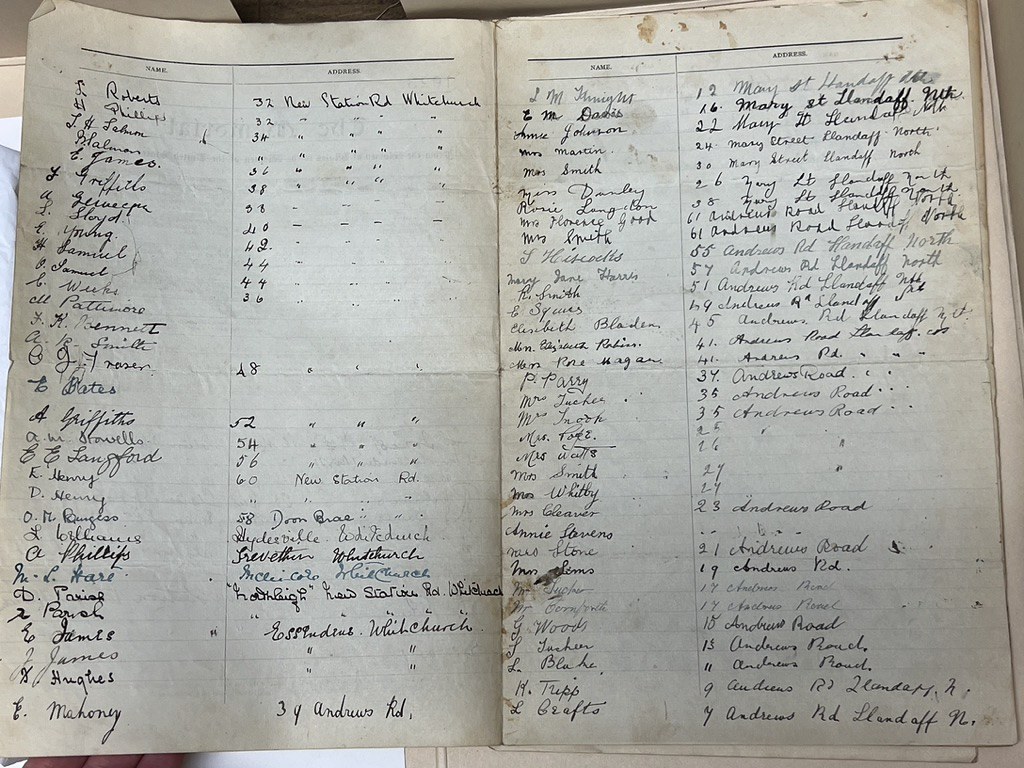 NAME. ADDRESS.
L Roberts 32 New Station Rd Whitchurch
H Phillips 32 " " "
34 " " "
E. James. " " " "
Griffiths 36 " " "
A 38 " " "
Lloyd 38 - " "
E. Young. 40 - - "
H Samuel 42 - " "
P. Samuel 44 " " "
C Weeks 44 " " "
M Pattimore 36 " " "
F. K. Bennett
A. Smith
48 " " "
E Bates
A Griffiths 52 " " "
A. M. Howells 54 " " "
E E Langford 56 " " "
K. Henry 60 New Station Rd.
D. Henry " " " "
O. M. Burgess 58 Doon Brae " " "
L Williams Whitchurch
A Phillips Trevethin Whitchurch
M. L. Hare Whitchurch
D. Parish "Northleigh" New Station Rd. Whitchurch
Parish " " "
E James " Whitchurch
J James " "
H Hughes " "
E. Mahoney 39 Andrews Rd,
NAME. ADDRESS.
M 12 Mary St Llandaff Nth.
E M Davis 16. Mary St Llandaff. Nth
Annie Johnson 22 Mary St Llandaff Nth
Mrs Martin 24. Mary Street Llandaff North.
Mrs Smith 30 Mary Street Llandaff North
26 Mary St Llandaff North
Rosie Langdon 38 Mary St Llandaff North
Mrs Florence Good 61 Andrews Road Llandaff North
Mrs Smith 61 Andrews Road Llandaff North
Hiscocks 55 Andrews Rd Llandaff North
Mary Jane Harris 57 Andrews Rd Llandaff North
R. Smith 51 Andrews Rd Llandaff Nth
E Squires 49 Andrews Rd Llandaff
Elisibeth Bladen 45 Andrews Rd Llandaff
Mrs. Elizabeth 41. Andrews Road Llandaff.
Mrs Rose Magan 41. Andrews Rd. " " "
P. Parry 37. Andrews Road. " "
Mrs Tucker 35 Andrews Road " " "
Mrs Snook 35 Andrews Road " " "
Mrs. 25 "
Mrs Watts 26 "
Mrs Smith 27 "
Mrs Whitby 27
Mrs Cleaver 23 Andrews Road
Annie Stevens " "
Mrs Stone 21 Andrews Road
Mrs Sems 19 Andrews Rd.
Mr Tucker 17 Andrews Road
Mr 17 Andrews Road
G Woods 15 Andrews Road
Tucker 13 Andrews Road.
L. Blake 11 Andrews Road.
K. Tripp 9 Andrews Rd Llandaff. N.
L Crafts 7 Andrews Rd Llandaff N.